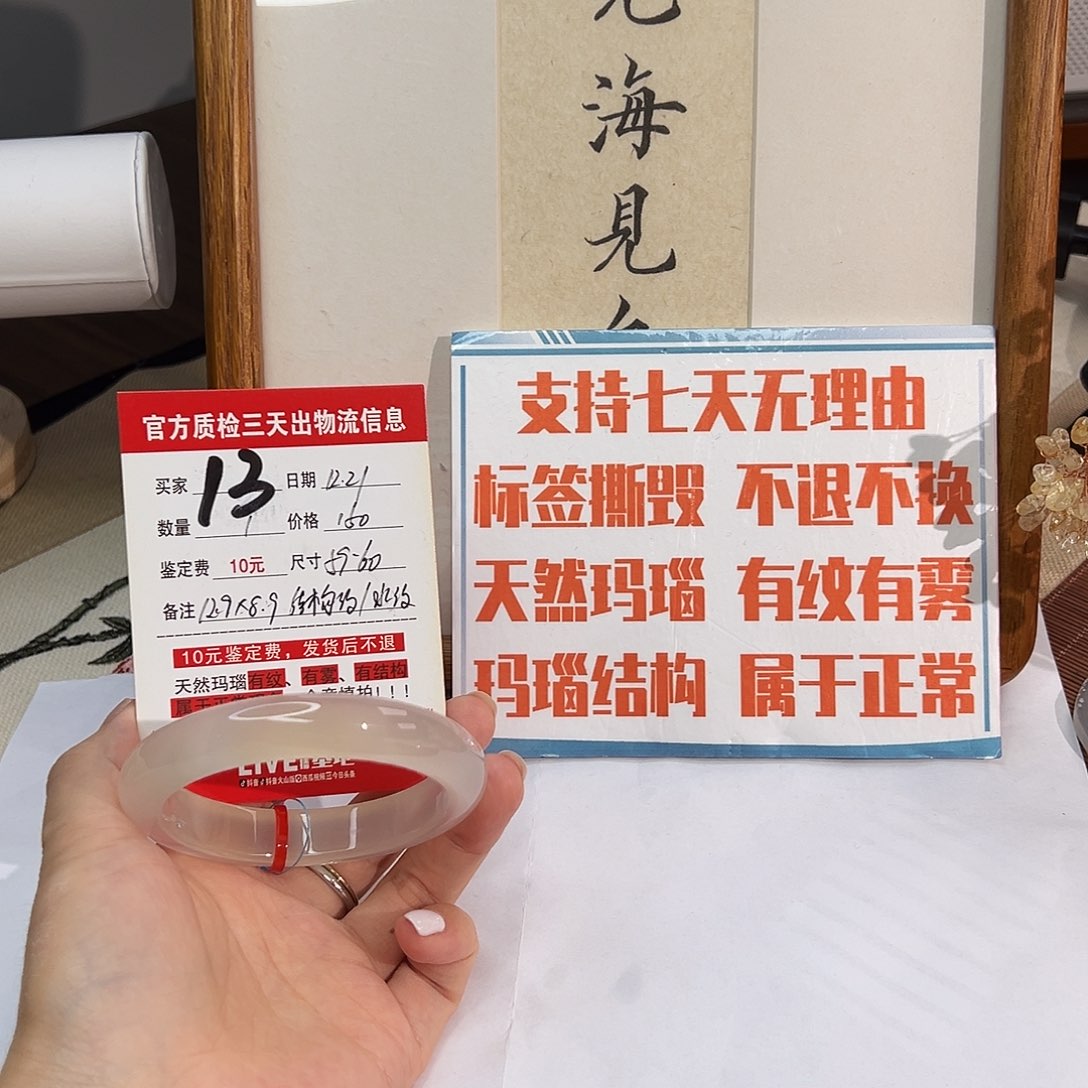 海
見
官方质检三天出物流信息
买家 13 日期 12.21
数量 1 价格 150
鉴定费 10元 尺寸 59-60
备注 12.9×8.9 结构纹/水纹
10元鉴定费，发货后不退
天然玛瑙有纹、有雾、有结构
属于正常
慎拍！！！
LIVE
支持七天无理由
标签撕毁 不退不换
天然玛瑙 有纹有雾
玛瑙结构 属于正常